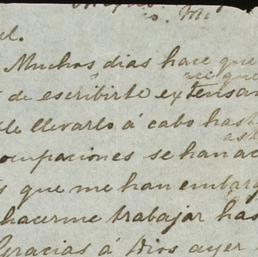 el.
Muchos dias hace que
de escribirte extensam
llevarlo á cabo hast
ocupaciones se han ac
que me han embarg
hacerme trabajar has
Gracias á Dios ayer